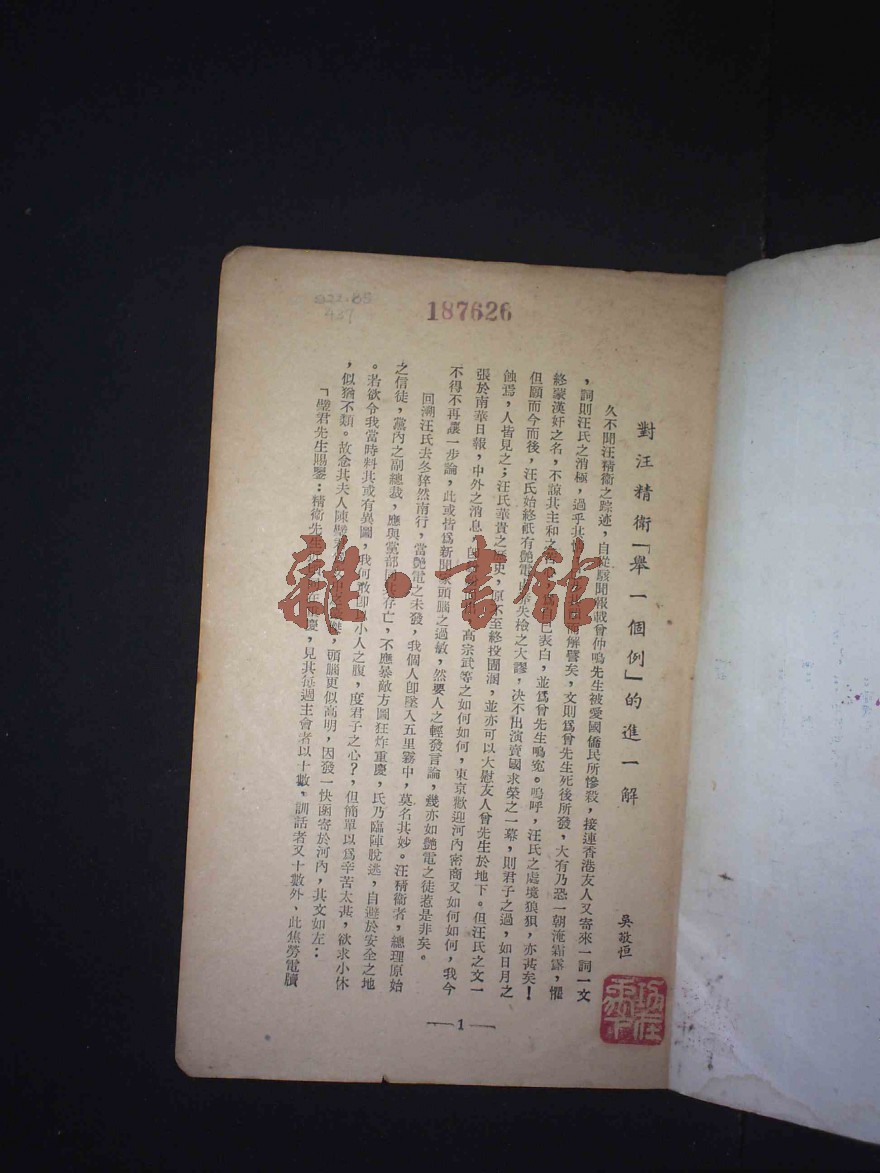 187626
對汪精衛「舉一個例」的進一解
吳敬恒
久不聞汪精衛之踪迹，自從駭聞報載曾仲鳴先生被愛國僑民所慘殺，接連香港友人又寄來一詞一文
，詞則汪氏之消極，過乎其 解譬矣，文則爲曾先生死後所發，大有乃恐一朝淹霜露，懼
終蒙漢奸之名，不諒其主和之 已表白，並爲曾先生鳴寃。嗚呼，汪氏之處境狼狽，亦甚矣！
但願而今而後，汪氏始終祇有艷電 失檢之大謬，决不出演賣國求榮之一幕，則君子之過，如日月之
蝕焉，人皆見之；汪氏華貴之 史，原不至終投圊溷，並亦可以大慰友人曾先生於地下。但汪氏之文一
張於南華日報，中外之消息， 高宗武等之如何如何，東京歡迎河內密商又如何如何，我今
不得不再讓一步論，此或皆爲新聞家頭腦之過敏，然要人之輕發言論，幾亦如艷電之徒惹是非矣。
回溯汪氏去冬猝然南行，當艷電之未發，我個人卽墜入五里霧中，莫名其妙。汪精衛者，總理原始
之信徒，黨內之副總裁，應與黨部 存亡，不應暴敵方圖狂炸重慶，氏乃臨陣脫逃，自避於安全之地
。若欲令我當時料其或有異圖，我何敢卽以小人之腹，度君子之心？，但簡單以爲辛苦太甚，欲求小休
，似猶不類。故念其夫人陳璧君 ，頭腦更似高明，因發一快函寄於河內，其文如左：
「璧君先生賜鑒：精衛先生 慶，見其每週主會者以十數，訓話者又十數外，此焦勞電牘
—1—
雜·書館